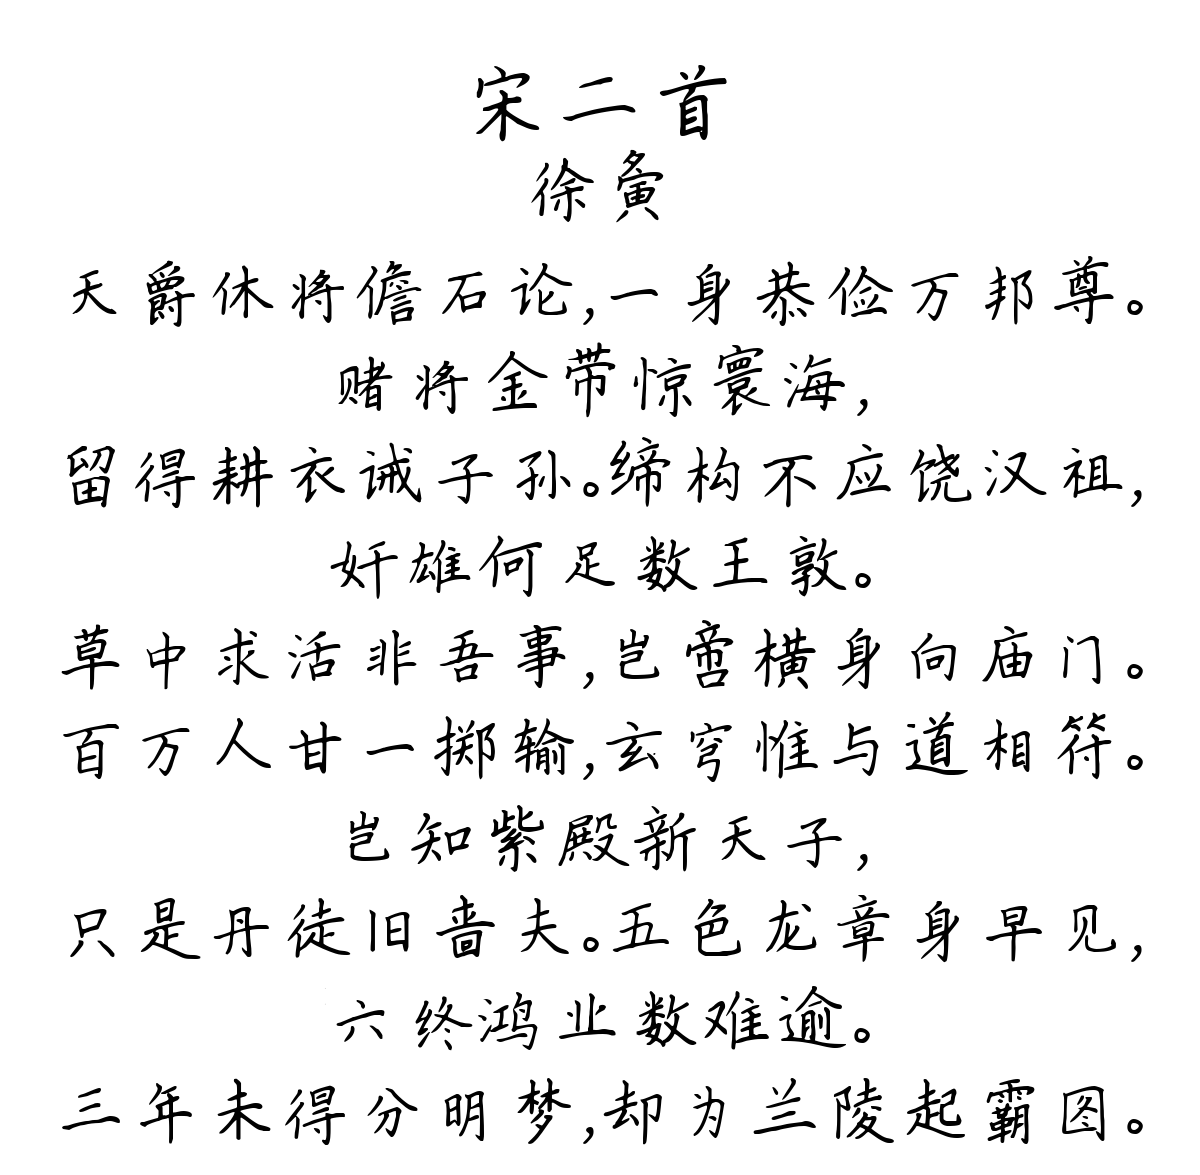 宋二首
徐夤
天爵休将儋石论,一身恭俭万邦尊。
赌将金带惊寰海,
留得耕衣诫子孙。缔构不应饶汉祖,
奸雄何足数王敦。
草中求活非吾事,岂啻横身向庙门。
百万人甘一掷输,玄穹惟与道相符。
岂知紫殿新天子,
只是丹徒旧啬夫。五色龙章身早见,
六终鸿业数难逾。
三年未得分明梦,却为兰陵起霸图。